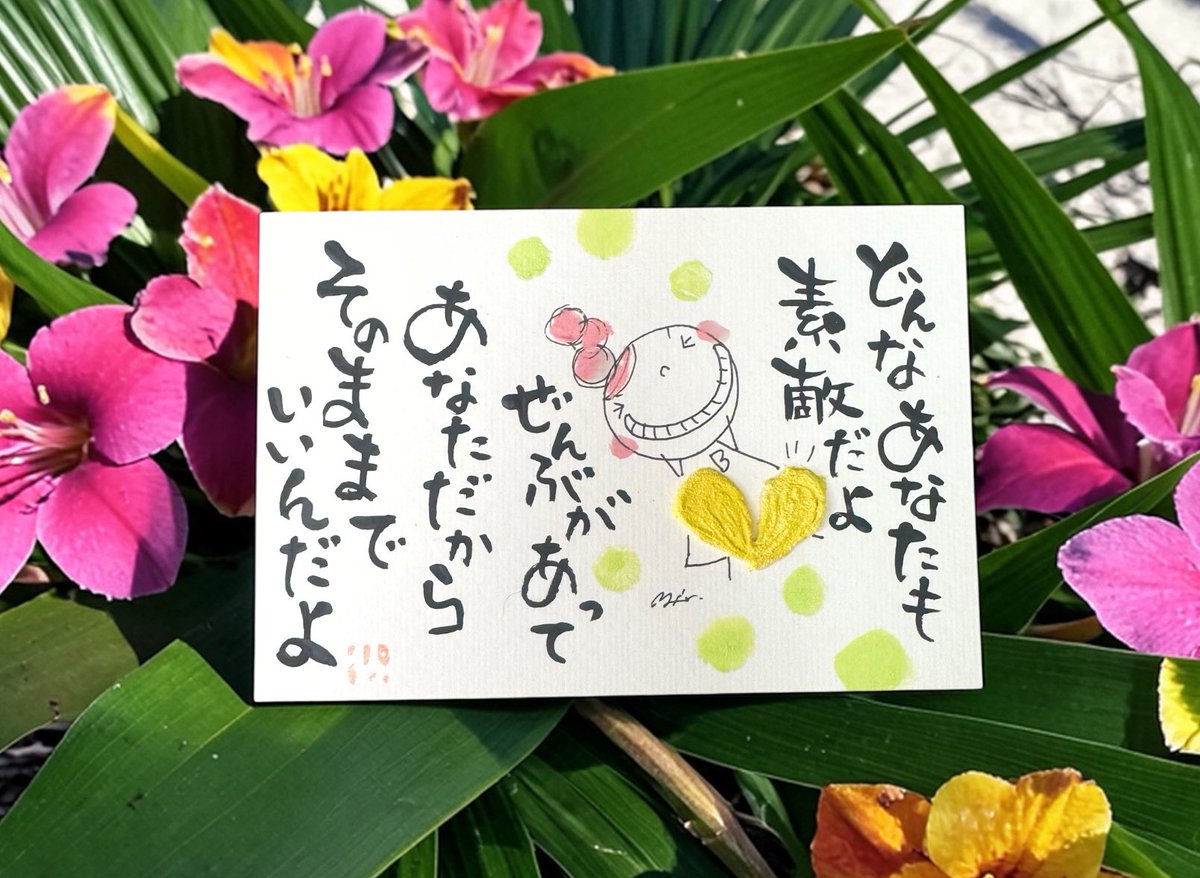 どんなあなたも
素敵だよ
ぜんぶが
あって
あなただから
そのままで
いいんだよ
B